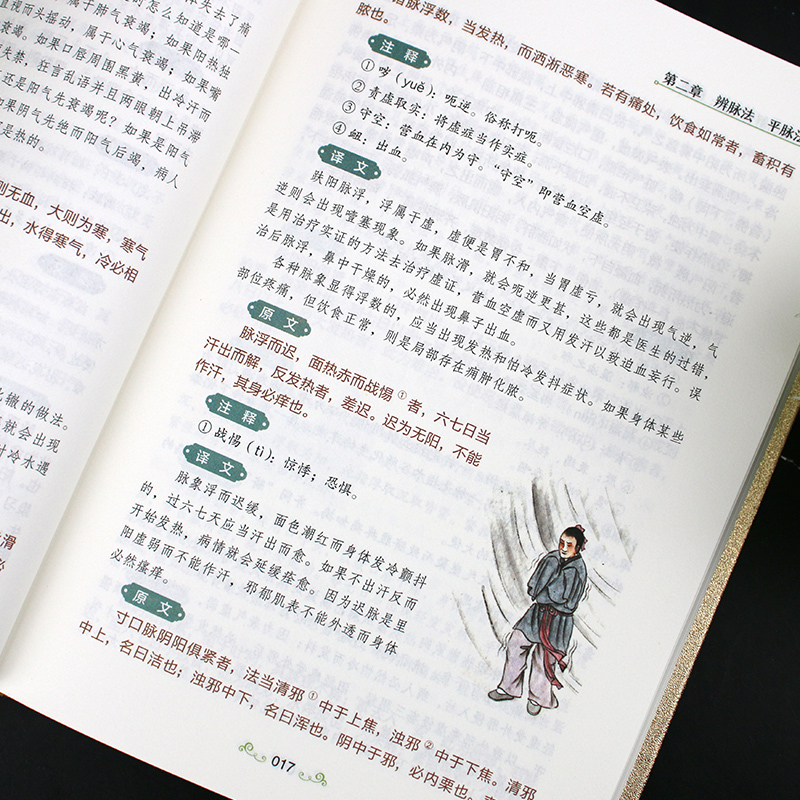 失去了痛
怎么知道是哪一
属于肺气衰竭；如果阳热独
直视而头摇动，属于心气衰竭；如果嘴
衰竭。如果口唇周围黑黄，出冷汗而
失禁，狂言乱语并且两眼朝上吊满
还是阳气先衰竭呢？如果是阳气
如果阴气先绝而阳气后竭，病人
都是热的。
则无血，大则为寒，寒气
出，水得寒气，冷必相
辙的做法。
就会出现
时冷水遇
滑
第二章 辨脉法 平脉法
脉浮数，当发热，而洒淅恶寒。若有痛处，饮食如常者，畜积有
脓也。
注释
①哕（yuě）：呃逆。俗称打呃。
②责虚取实：将虚症当作实症。
③守空：营血在内为守。“守空”即营血空虚。
④衄：出血。
译文
趺阳脉浮，浮属于虚，虚便是胃不和，当胃虚亏，就会出现气逆，气
逆则会出现噎塞现象。如果脉滑，就会呃逆更甚，这些都是医生的过错，
是用治疗实证的方法去治疗虚证，营血空虚而又用发汗以致迫血妄行。误
治后脉浮，鼻中干燥的，必然出现鼻子出血。
各种脉象显得浮数的，应当出现发热和怕冷发抖症状。如果身体某些
部位疼痛，但饮食正常，则是局部存在痈肿化脓。
原文
脉浮而迟，面热赤而战惕①者，六七日当
汗出而解，反发热者，差迟。迟为无阳，不能
作汗，其身必痒也。
注释
①战惕（tì）：惊悸；恐惧。
译文
脉象浮而迟缓，面色潮红而身体发冷颤抖
的，过六七天应当汗出而愈。如果不出汗反而
开始发热，病情就会延缓痊愈。因为迟脉是里
阳虚弱而不能作汗，邪郁肌表不能外透而身体
必然瘙痒。
原文
寸口脉阴阳俱紧者，法当清邪①中于上焦，浊邪②中于下焦。清邪
中上，名曰洁也；浊邪中下，名曰浑也。阴中于邪，必内栗也。
017